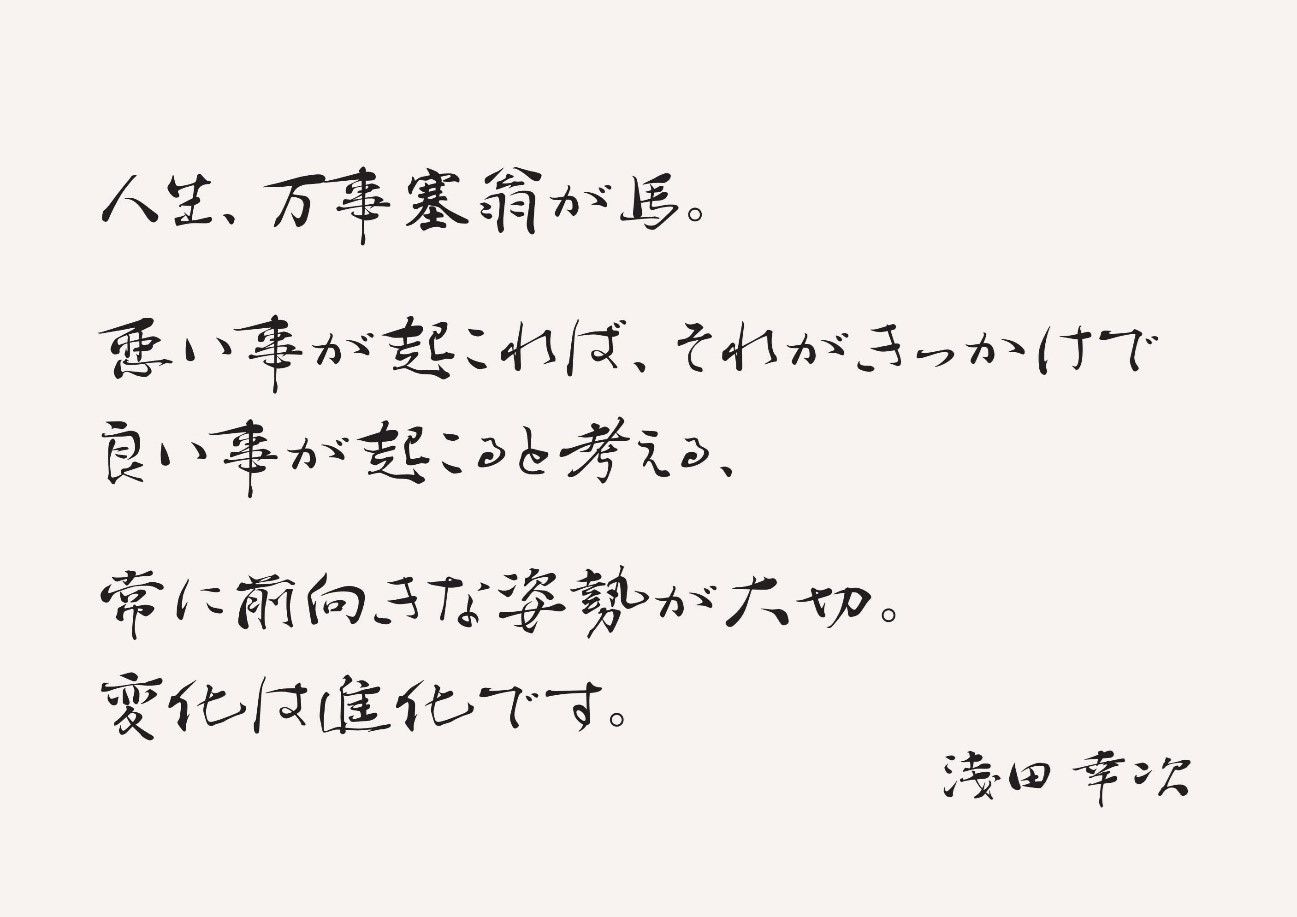 人生、万事塞翁が馬。
悪い事が起これば、それがきっかけで
良い事が起こると考える、
常に前向きな姿勢が大切。
変化は進化です。
浅田 幸次